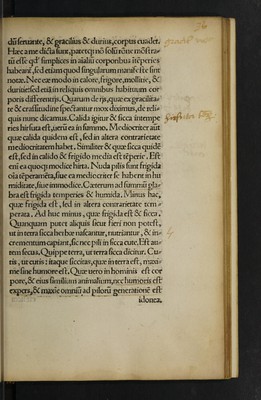 dū feruente, & gracilius & durius, corpus euadet.
Hæc a me dicta sunt, patetq; nō solū rōne mōstra-
tū esse qd' simplices in aialiū corporibus itēperies
habeant, sed etiam quod singularum manifestæ sint
notæ. Nec eæ modo in calore, frigore, mollitie, &
duritie: sed etiā in reliquis omnibus habitūum cor
poris differentijs. Quarum de ijs, quæ ex gracilita-
te & crassitudine spectantur mox diximus, de reli-
quis nunc dicamus. Calida igitur & sicca intempe
ries hirsuta est, uerū ea in summo. Mediocriter aūt
quæ calida quidens est, sed in altera contrarietate
mediocritatem habet. Similiter & quæ sicca quidē
est, sed in calido & frigido media est tēperie. Est
eni ea quoq; modice hirta. Nuda pilis sunt frigida
oīa tēperamēta, siue ea mediocriter se habent in hu
miditate, siue immodice. Cæterum ad summū gla-
bra est frigida temperies & humida. Minus hac,
quæ frigida est, sed in altera contrarietate tem-
perata. Ad huc minus, quæ frigida est & sicca.
Quanquam putet aliquis sicut fieri non potest,
ut in terra sicca herbæ nascantur, nutriantur, & in-
crementum capiant, sic nec pili in sicca cute. Est au-
tem secus. Quippe terra, ut terra sicca dicitur. Cu-
tis, ut cutis: itaque siccitas, quæ in terra est, maxi-
me sine humore est. Quæ uero in hominis est cor
pore, & eius similium animalium, nec humoris est
expers, & maxīe omniū ad pilorū generationē est
idonea.